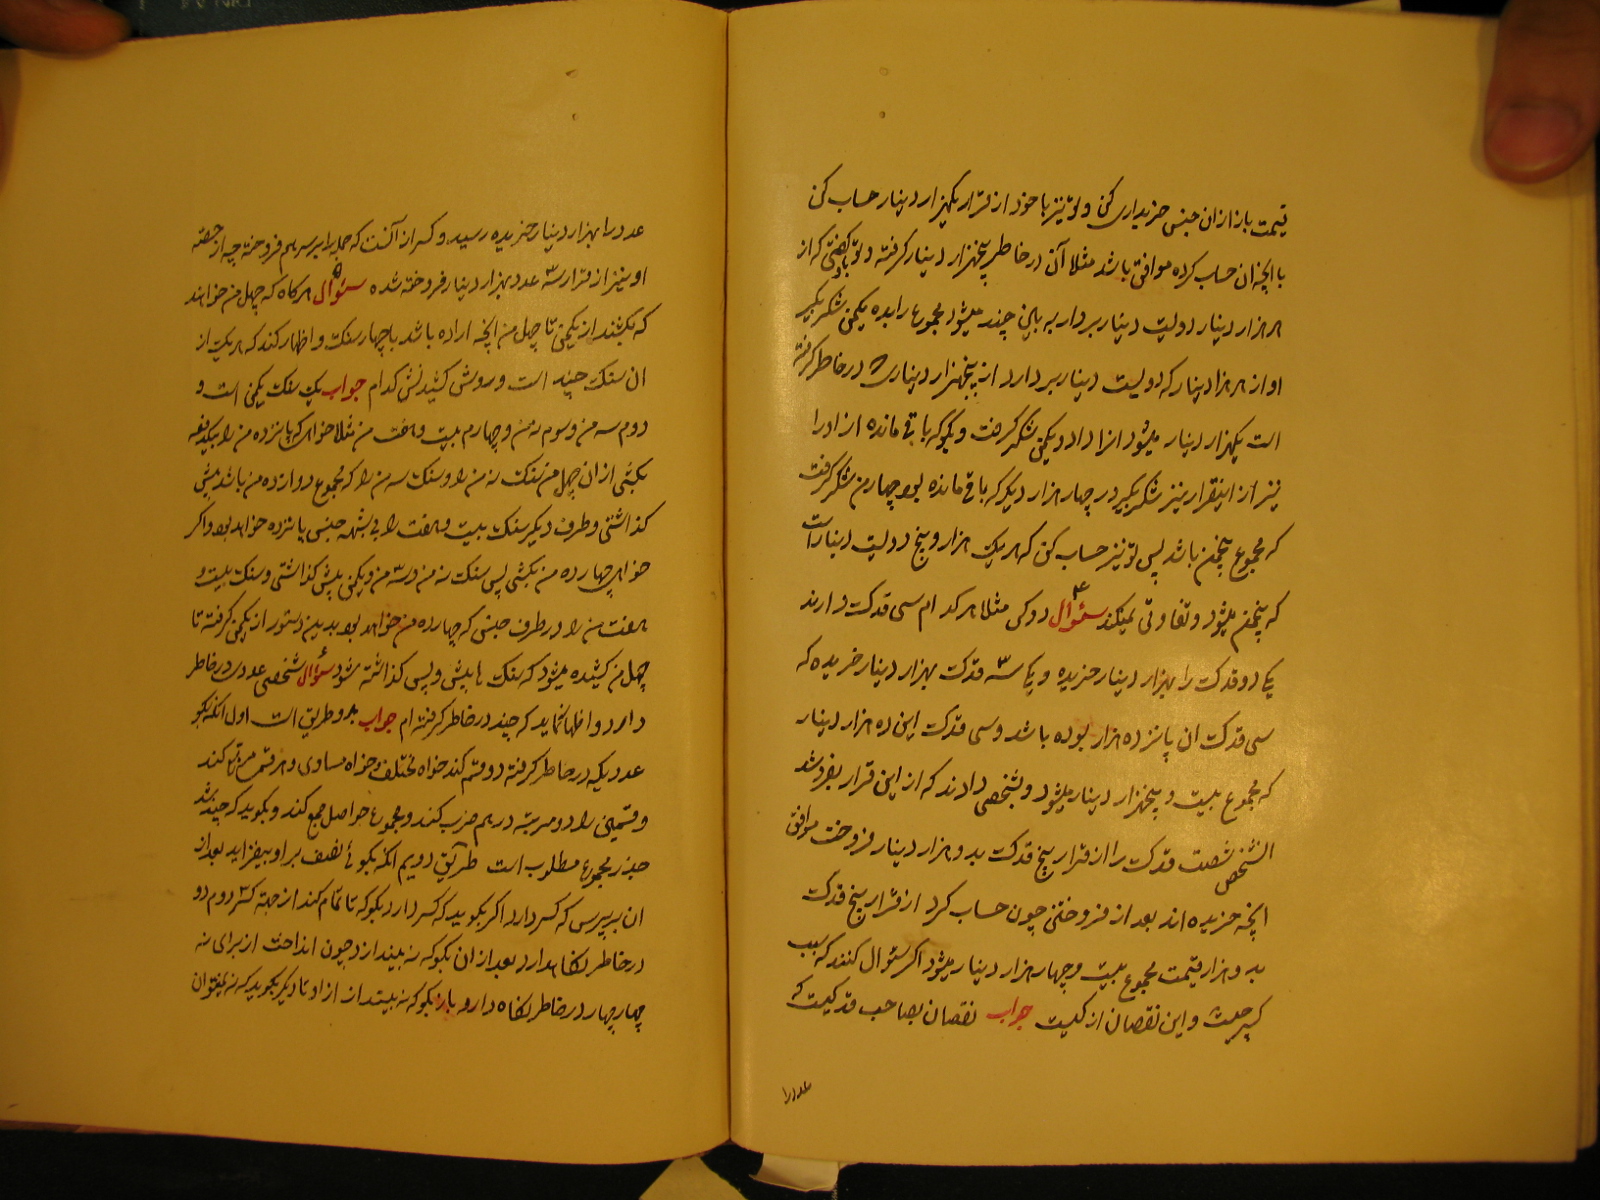 قیمت باز ازان جنس خریداری کن و تو نیز با خود از قرار یکهزار دینار حساب کن
با انچه ان حساب کرده موافق باشد مثلا آن در خاطر پنجهزار دینار گرفته و تو گفتی که از
هر هزار دینار دویست دینار بردار به باین چند میشود مجموع را بده یکمن شکر بگیر
او از هر هزار دینار که دویست دینار بردارد از پنجهزار دیناری که در خاطر گرفته
است یکهزار دینار میشود انرا داد و یکمن شکر گرفت و بگو که باقی مانده از او را
نیز از اینقرار نیز شکر بگیر در چهار هزار دیگر که باقی مانده بود چهار من شکر گرفت
که مجموع پنجمن باشد پس تو نیز حساب کن که هر یک هزار و پنج دویست دینار است
که پنجمن میشود و تفاوتی نمیکند سئوال ۴ دو کس مثلا هر کدام سی قدک دارند
یکی دو قدک را بهزار دینار خریده و یکی سه ۳ قدک بهزار دینار خریده که
سی قدک ان پانزده هزار بوده باشد و سی قدک این ده هزار دینار
که مجموع بیست و پنجهزار دینار میشود و بشخصی دادند که از این قرار بفروشد
انشخص شصت قدک را از قرار پنج قدک بدو هزار دینار فروخت موافق
انچه خریده اند بعد از فروختن چون حساب کرد از قرار پنج قدک
بدو هزار قیمت مجموع بیست و چهار هزار دینار میشود اگر سئوال کنند که سبب
کسر چیست و این نقصان از کیست جواب نقصان بصاحب قدکیست که
عدد را
عدد را بهزار دینار خریده رسید و کسر از آنست که جمله را برسر هم فروخته چه از حصه
او نیز از قرار ۳ عدد بهزار دینار فروخته شده سئوال ۵ هرگاه که چهل من خواهند
که بکشند از یکمن تا چهل من انچه اراده باشد با چهار سنک و اظهار کند که هر یک از
ان سنک چند است و روش کشیدنش کدام جواب یک سنک یکمن است و
دوم سه من و سوم نه من و چهارم بیست و هفت من مثلا خواهی که پانزده من را بیکدفعه
بکشی از ان چهل من سنک نه من را و سنک سه من را که مجموع دوازده من باشد پیش
گذاشتی و طرف دیگر سنک بیست و هفت را بنهی جنس پانزده خواهد بود و اگر
خواهی چهارده من بکشی پس سنک نه من و سه ۳ من و یکمن پیش گذاشتی و سنک بیست و
هفت من را در طرف جنس که چهارده من خواهد بود بدین دستور از یکمن گرفته تا
چهل من کشیده میشود که سنک ها پیش و پس گذاشته شود سئوال ۶ شخصی عددی در خاطر
دارد و اظهار نماید که چند در خاطر گرفته ام جواب بدو طریق است اول انکه بگو
عددیکه در خاطر گرفته دو قسم کند خواه مختلف و خواه مساوی و هر قسم مربع کند
و قسمین را دو مرتبه در هم ضرب کند و مجموع حواصل جمع کند و بگوید که چند شد
جذر مجموع مطلوب است طریق دویم انکه بگوئی نصف بر او بیفزاید بعد از
ان بپرس که کسر دارد اگر بگوید که کسر دارد بگو که تا تمام کند از جهة کسر دوم دو
در خاطر نگاهدارد بعد از ان بگو که نه بیندازد چون انداخت از برای نه
چهار چهار در خاطر نگاه دارد و باز بگو که نه بیندازد از او تا دیگر بگوید که نه نمیتوان